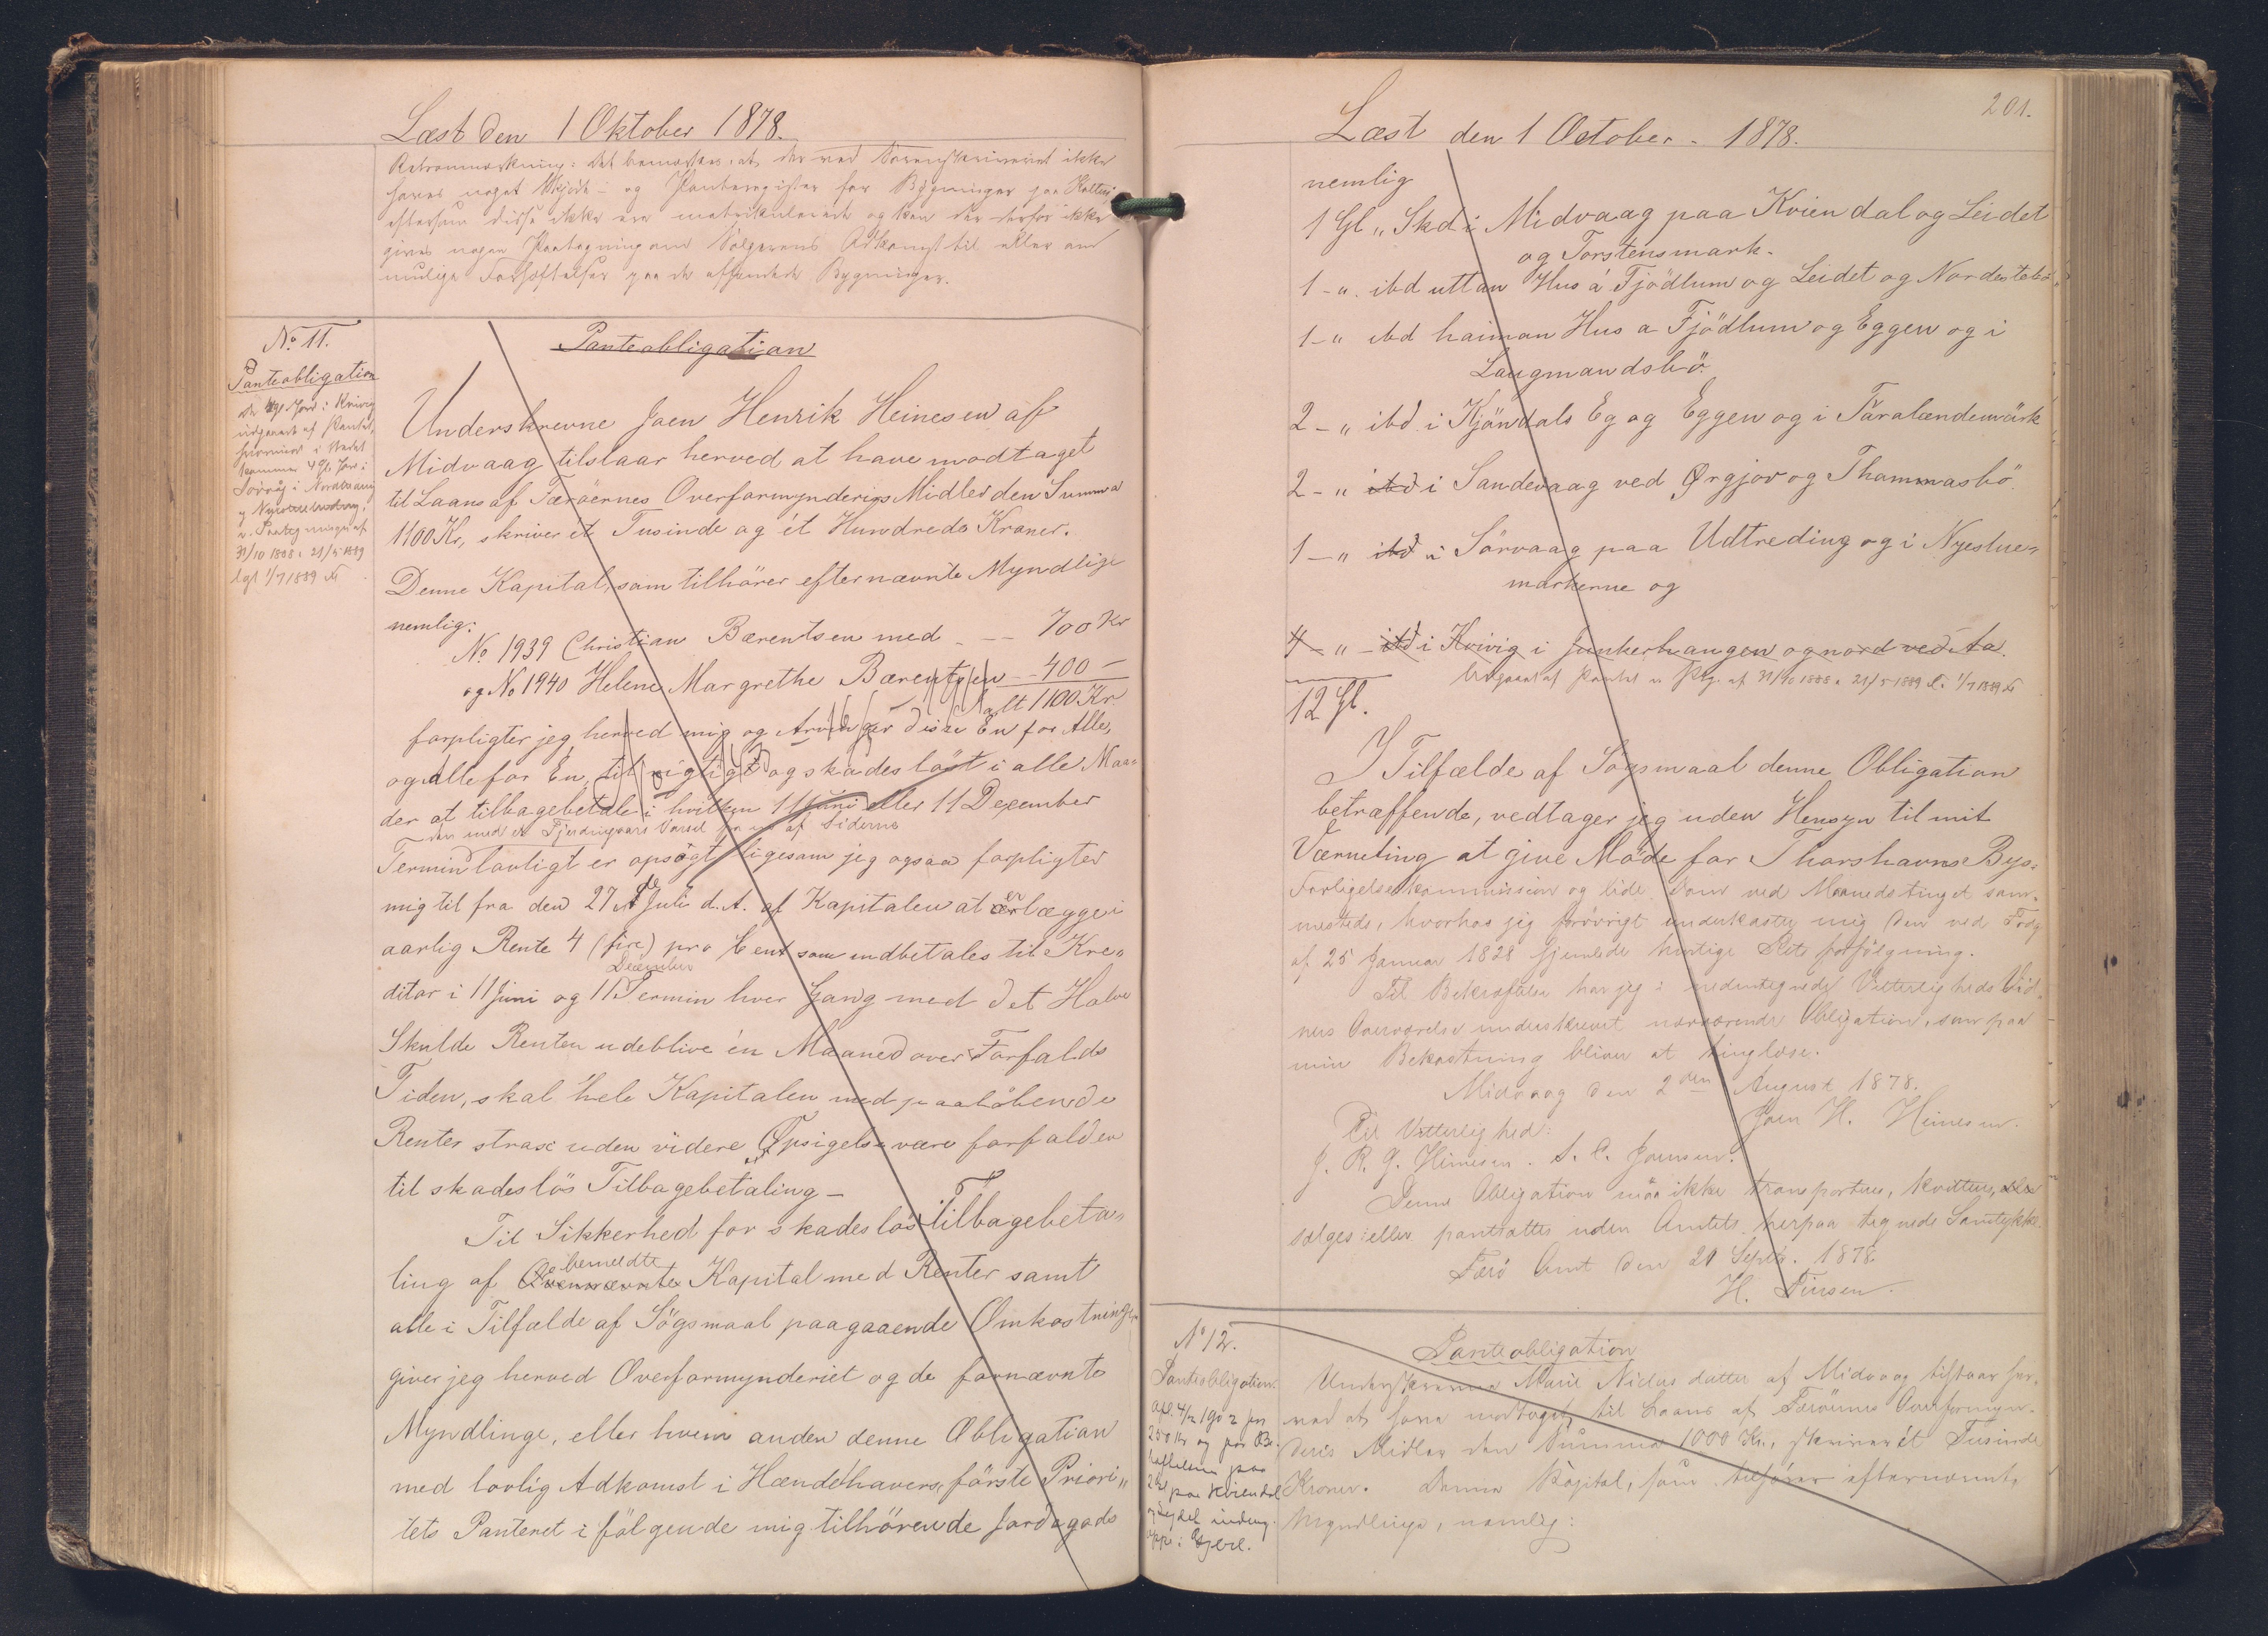 Læst den 1 Oktober 1878.
Retsanmærkning: Det bemærkes, at der ved Sorenskriveriet ikke
haves noget Skjøde- og Panteregister for Bygninger paa
eftersom disse ikke ere matrikulerede og kan der derfor ikke
gives nogen Paategning om Sælgerens Adkomst til eller om
mulige Forhæftelser paa de afhændede Bygninger.
No 11.
Panteobligation
de 4 Gl Jord i Kvivig
udgaaet af Pantet,
hvorimod i Stedet
kommer 4 Gl. Jord i
Sörvåg i
v. Paategninger af
31/10 1888 & 21/5 1889
lgl 1/7 1889
Panteobligation
Underskrevne Joen Henrik Heinesen af
Midvaag tilstaar herved at have modtaget
til Laans af Færöernes Overformynderies Midler den Summa
1100 Kr, skriver et Tusinde og ét Hundrede Kroner.
Denne Kapital, som tilhörer efternævnte Myndlige
nemlig:
No 1939 Christian Bærentsen med - -- 700 Kr
og No 1940 Helene Margrethe Bærentsen -- 400 -
alt 1100 Kr.
forpligter jeg herved mig og Arvinger disse En for Alle,
og Alle for En, til rigtigt og skadeslöst i alle Maa-
der at tilbagebetale i hvilken 11 Juni eller 11 December
den med et Fjerdingaars Varsel fra en af Siderne
Termin lovligt er opsögt ligesom jeg ogsaa forpligter
mig til fra den 27 de Juli d. A. af Kapitalen at erlægge i
aarlig Rente 4 (fire) pro Cent som indbetales til Kre-
December
ditor i 11 Juni og 11 Termin hver Gang med det Halve
Skulde Renten udeblive én Maaned over Forfalds
Tiden, skal hele Kapitalen med paalöbende
Renter strax uden videre Opsigelse være forfalden
til skadeslös Tilbagebetaling -
Til Sikkerhed for skadeslös Tilbagebeta-
bemeldte
ling af Ovennævnte Kapital med Renter samt
alle i Tilfælde af Sögsmaal paagaaende Omkostninger
giver jeg herved Overformynderiet og de fornævnte
Myndlinge, eller hvem anden denne Obligation
med lovlig Adkomst i Hændehavers, förste Priori-
tets Panteret i fölgende mig tilhörende Jordegods
201.
Læst den 1 October - 1878.
nemlig
1 Gl „ Skd i Midvaag paa Kviendal og Leidet
og Torstensmark.
1 - „ ibd uttan Hus á Fjödlum og Leidet og Nordestebö
1 - „ ibd haiman Hus a Fjödlum og Eggen og i
Laugmandsbö.
2 - „ ibd i Kjöndals Eg og Eggen og i Taralændemörk
2 - „ ibd i Sandevaag ved Ørgjov og Thommasbö.
1 - „ ibd i Sörvaag paa Udtreding og i Nyestue-
markerne og
4 - „ - ibd i Kvivig i Junkerhaugen og nord ved Aa.
Udgaaet af Pantet v. Ptg. af 31/10 1888 & 21/5 1889 l. 1/7 1889
12 Gl.
I Tilfælde af Sögsmaal denne Obligation
betræffende, vedtager jeg uden Hensyn til mit
Værneting at give Möde for Thorshavns Bys
Forligelseskommission og lide Dom ved Maanedstinget sam-
mesteds, hvorhos jeg forövrigt underkaster mig den ved Frdg
af 25 Januar 1828 hjemlede hurtige Retsforfölgning.
Til Bekræftelse har jeg i nedentegnede Vitterligheds Vid-
ners Overværelse underskrevet nærværende Obligation, som paa
min Bekostning bliver at tinglæse.
Midvaag den 2den August 1878.
Joen H. Heinesen.
Til Vitterlighed:
J. R. J. Heinesen. S. C. Joensen.
Denne Obligation maa ikke transporteres, kvitteres, eller
sælges eller pantsættes uden Amtets herpaa tegnede Samtykke.
Færö Amt den 21 Septb. 1878.
H. Finsen.
No 12.
Panteobligation.
afl. 4/2 1902 for
250 Kr og for Be-
hæftelsen paa
2 Gl paa Kviendal
Panteobligation
Underskrevne Marie Niclas datter af Midvaag tilstaar her-
ved at have modtaget til Laans af Færöernes Overformyn-
deris Midler den Summa 1000 Kr., skriver ét Tusinde
Kroner. Denne Kapital, som tilhörer efternævnte
Myndlinge, nemlig: